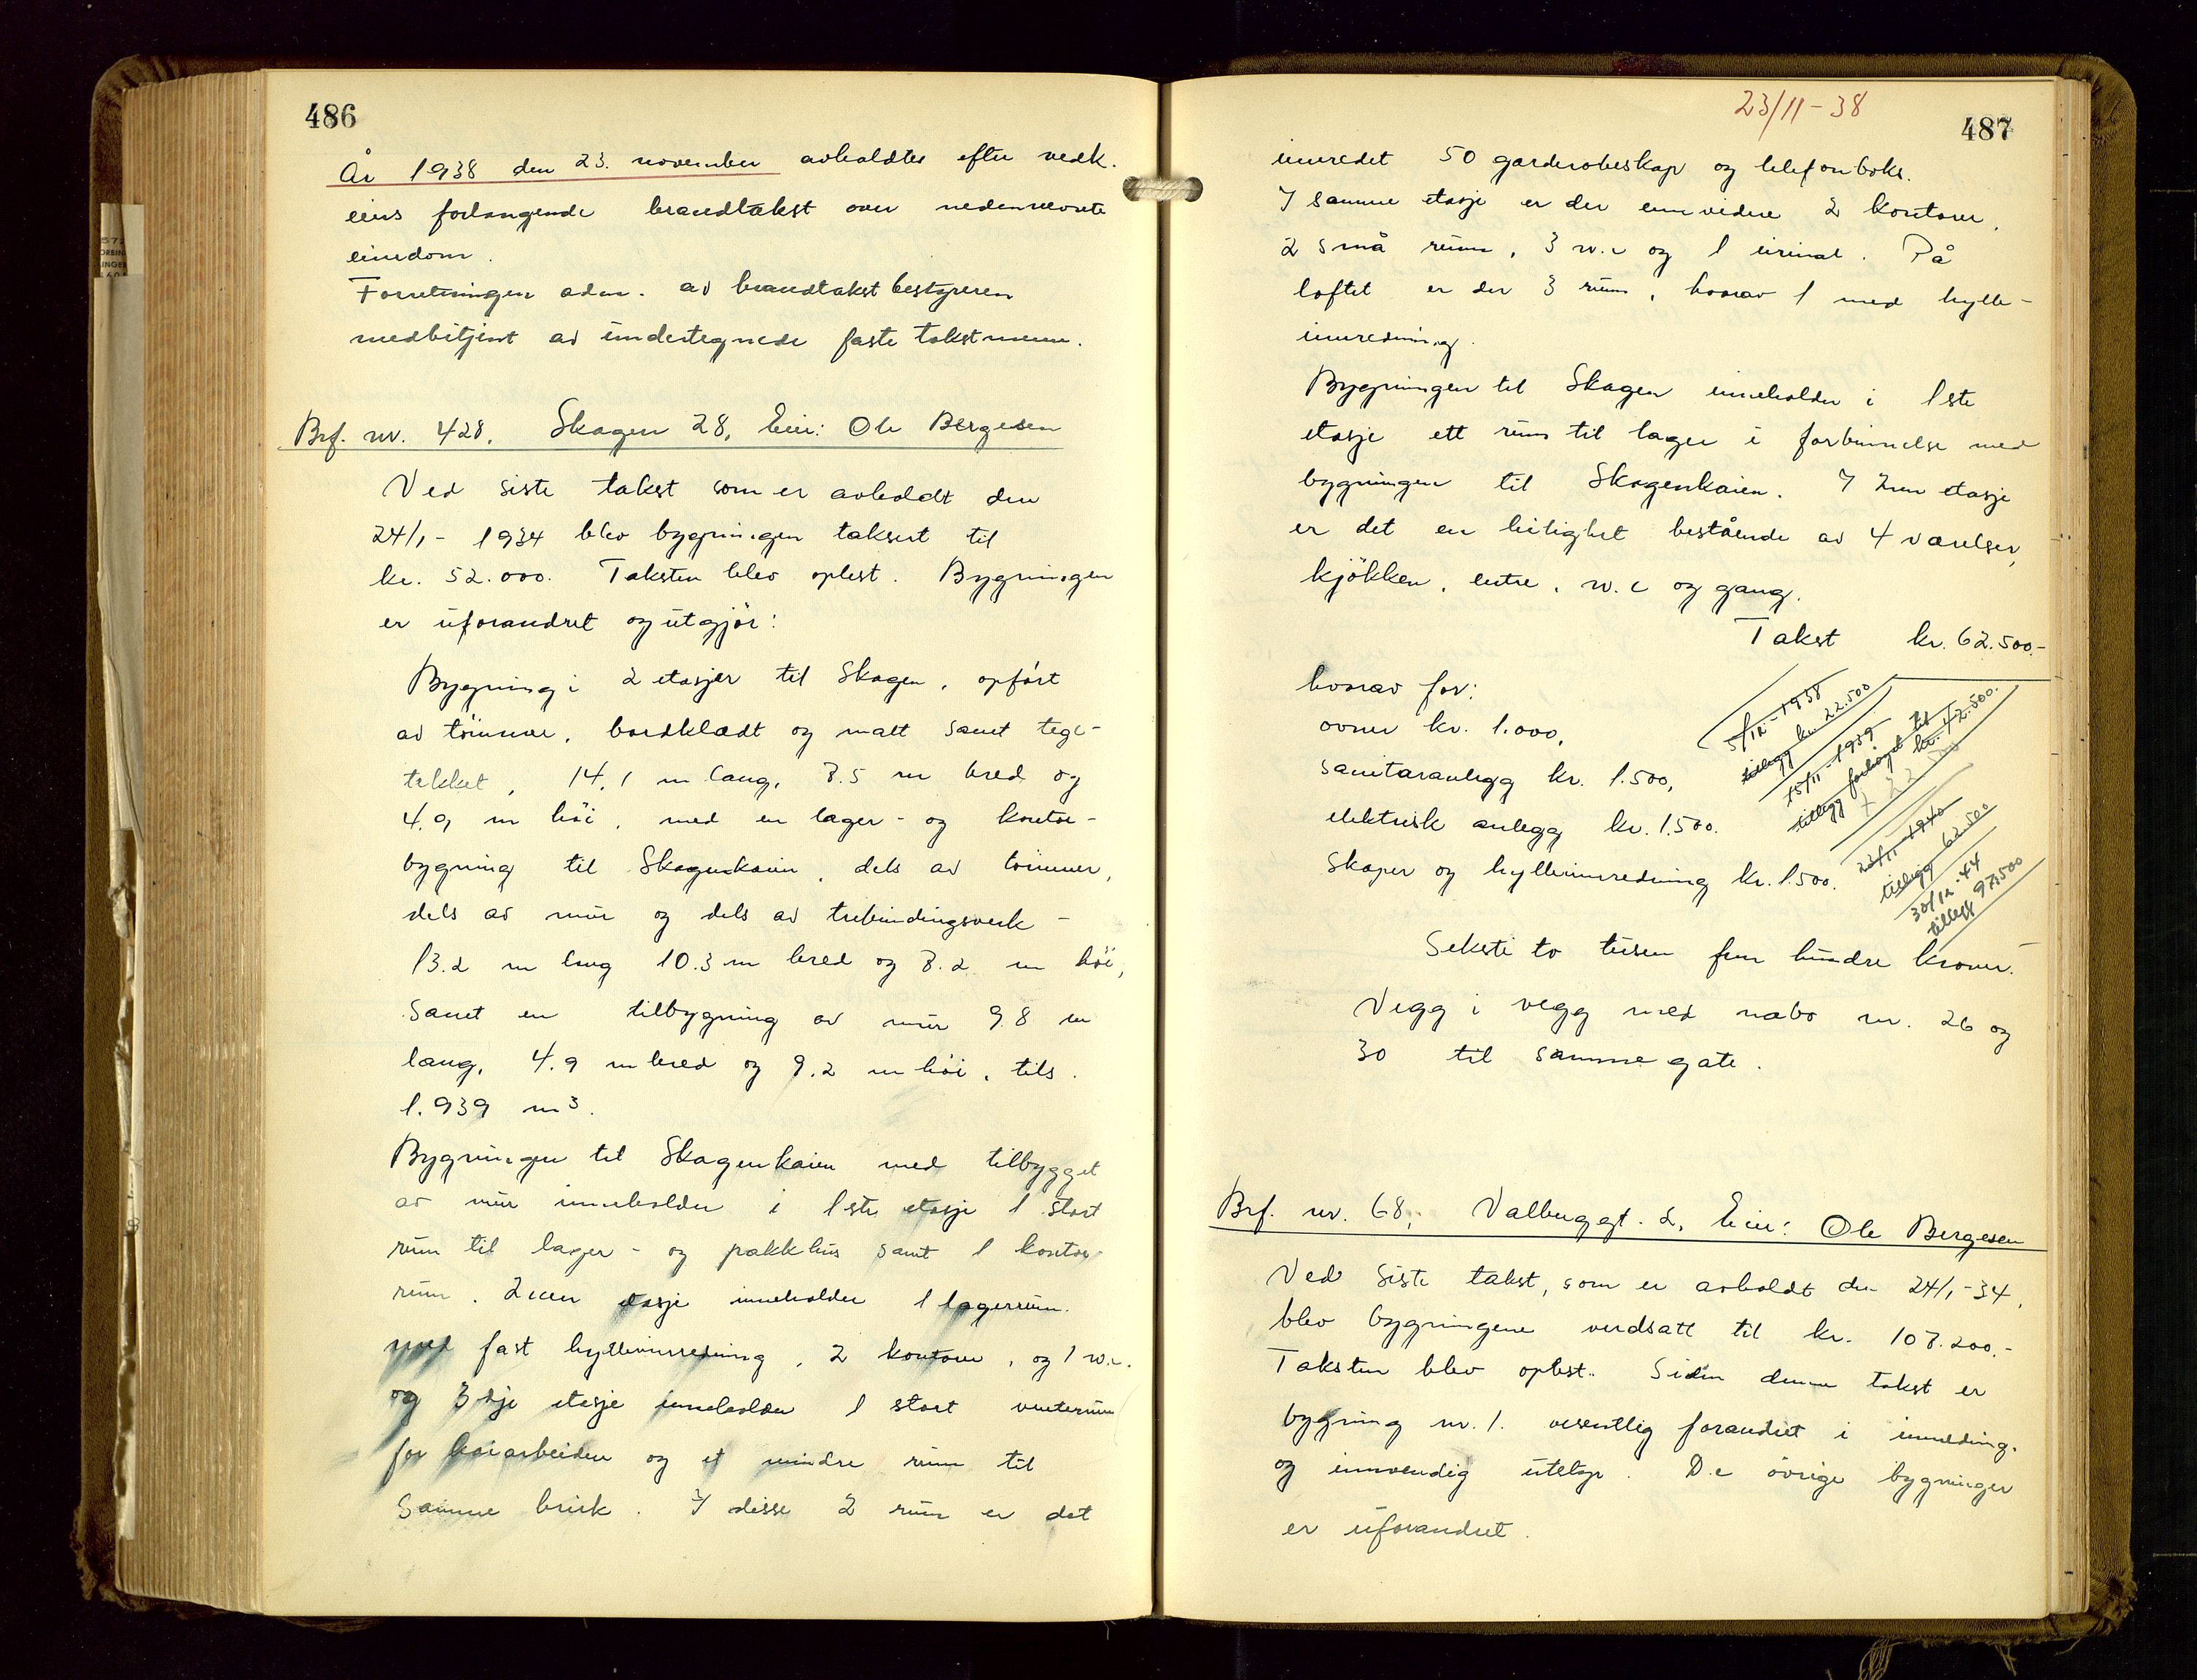 486
År 1938 den 23. november avholdtes efter vedk.
eiers forlangende brandtakst over nedennevnte
eiendom.
Forretningen adm. av brandtakstbestyreren
medbetjent av undertegnede faste takstmenn.
Brf. nr. 428, Skagen 28, Eier: Ole Bergesen
Ved siste takst som er avholdt den
24/1 - 1934 blev bygningen taksert til
kr. 52.000. Taksten blev oplest. Bygningen
er uforandret og utgjør:
Bygning i 2 etasjer til Skagen, opført
av tømmer, bordklædt og malt samt tegl-
tekket, 14,1 m lang, 8.5 m bred og
4.9 m høi, med en lager- og kontor-
bygning til Skagenkaien, dels av tømmer,
dels av mur og dels av trebindingsverk -
13.2 m lang 10.3 m bred og 8.2 m høi,
samt en tilbygning av mur 9.8 m
lang, 4.9 m bred og 9.2 m høi, tils.
1.939 m³.
Bygningen til Skagenkaien med tilbygget
av mur inneholder i 1ste etasje 1 stort
rum til lager- og pakkhus samt 1 kontor-
rum. 2nen etasje inneholder 1 lagerrum.
med fast hylleinnredning, 2 kontorer, og 1 w.c.
og 3dje etasje inneholder 1 stort venterum
for kaiarbeidere og et mindre rum til
samme bruk. I disse 2 rum er det
23/11 - 38
487
innredet 50 garderobeskap og telefonboks.
I samme etasje er der ennvidere 2 kontorer,
2 små rum, 3 w.c og 1 urinal. På
loftet er der 3 rum, hvorav 1 med hylle-
innredning.
Bygningen til Skagen inneholder i 1ste
etasje ett rum til lager i forbinnelse med
bygningen til Skagenkaien. I 2nen etasje
er det en leilighet bestående av 4 værelser,
kjøkken, entre, w.c og gang.
Takst kr. 62.500.-
hvorav for:
ovner kr. 1.000,
sanitæranlegg kr. 1.500,
elektrisk anlegg kr. 1.500.
skaper og hylleinnredning kr. 1.500.
5/12 - 1938
tillegg kr. 22.500
15/11 - 1939
tillegg forhøiet til
kr. 42.500.
23/11 - 1940
tillegg 62.500
30/12 - 44
tillegg 97.500
Seksti to tusen fem hundre kroner.
Vegg i vegg med nabo nr. 26 og
30 til samme gate.
Brf. nr. 68, Valberggt. 2, Eier: Ole Bergesen
Ved siste takst, som er avholdt den 24/1 - 34,
blev bygningene verdsatt til kr. 108.200.-
Taksten blev oplest. Siden denne takst er
bygning nr. 1. vesentlig forandret i innredning.
og innvendig utstyr. De øvrige bygninger
er uforandret.